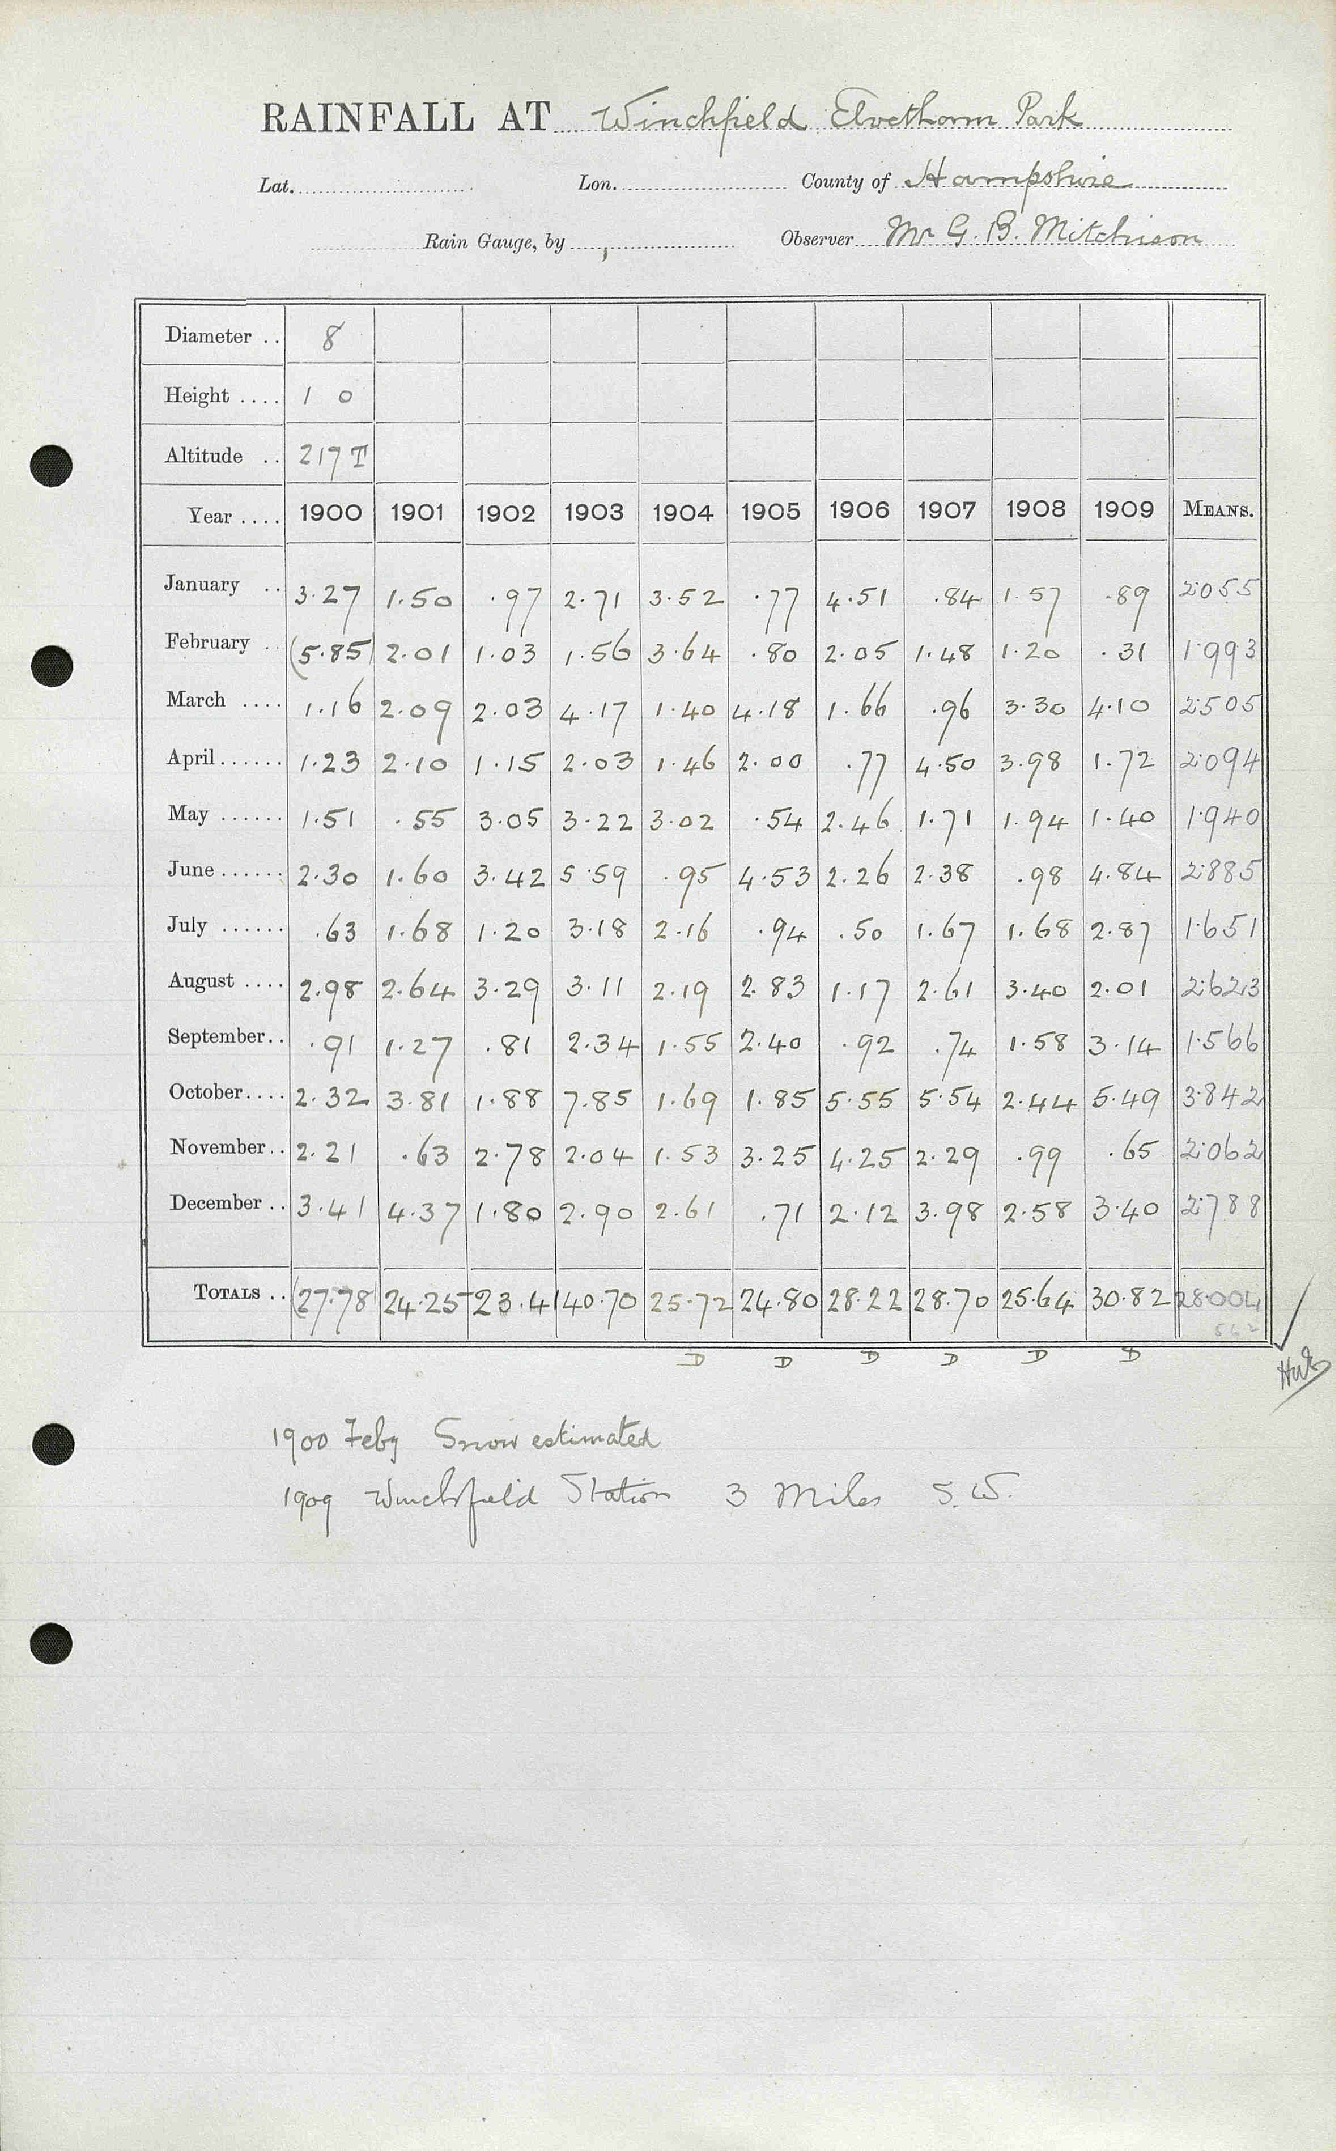 RAINFALL AT Winchfield Elvetham Park
Lat. Lon. County of Hampshire
Rain Gauge, by Observer Mr G. B. Mitchison
Diameter .. 8
Height .... 1 0
Altitude .. 217 T
Year .... 1900 1901 1902 1903 1904 1905 1906 1907 1908 1909 MEANS.
January .. 3.27 1.50 .97 2.71 3.52 .77 4.51 .84 1.57 .89 2.055
February .. (5.85) 2.01 1.03 1.56 3.64 .80 2.05 1.48 1.20 .31 1.993
March .... 1.16 2.09 2.03 4.17 1.40 4.18 1.66 .96 3.30 4.10 2.505
April ...... 1.23 2.10 1.15 2.03 1.46 2.00 .77 4.50 3.98 1.72 2.094
May ...... 1.51 .55 3.05 3.22 3.02 .54 2.46 1.71 1.94 1.40 1.940
June ...... 2.30 1.60 3.42 5.59 .95 4.53 2.26 2.38 .98 4.84 2.885
July ...... .63 1.68 1.20 3.18 2.16 .94 .50 1.67 1.68 2.87 1.651
August .... 2.98 2.64 3.29 3.11 2.19 2.83 1.17 2.61 3.40 2.01 2.623
September .. .91 1.27 .81 2.34 1.55 2.40 .92 .74 1.58 3.14 1.566
October .... 2.32 3.81 1.88 7.85 1.69 1.85 5.55 5.54 2.44 5.49 3.842
November .. 2.21 .63 2.78 2.04 1.53 3.25 4.25 2.29 .99 .65 2.062
December .. 3.41 4.37 1.80 2.90 2.61 .71 2.12 3.98 2.58 3.40 2.788
TOTALS .. (27.78) 24.25 23.41 40.70 25.72 24.80 28.22 28.70 25.64 30.82 28.004
562
D D D D D D
1900 Feby Snow estimated
1909 Winchfield Station 3 Miles S.W.